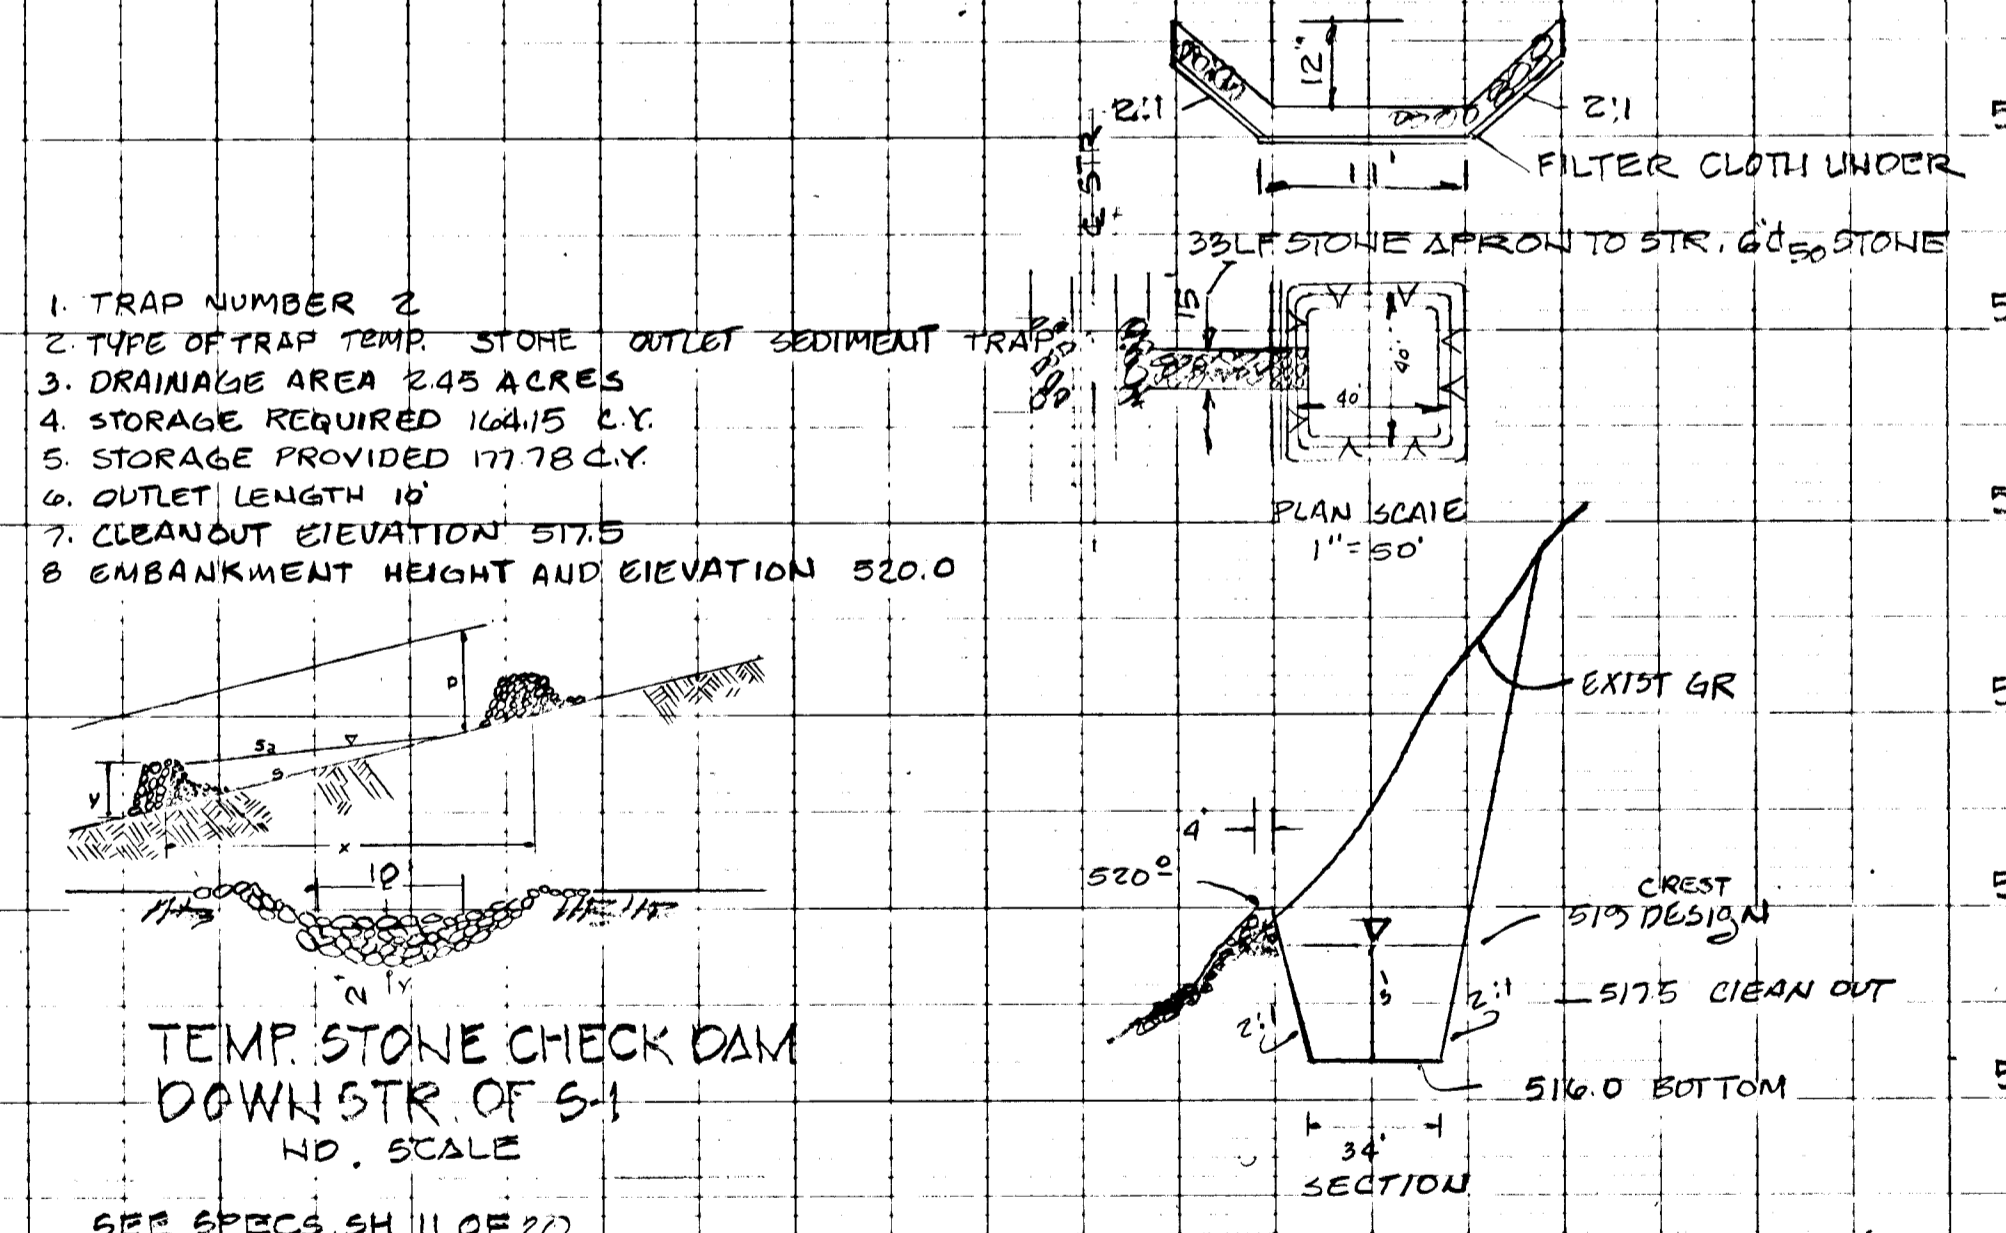 12"
2:1
2:1
FILTER CLOTH UNDER
11'
℄ STR
33LF STONE APRON TO STR. 6" d50 STONE
15'
40'
40'
PLAN SCALE
1"=50'
1. TRAP NUMBER 2
2. TYPE OF TRAP TEMP. STONE OUTLET SEDIMENT TRAP
3. DRAINAGE AREA 2.45 ACRES
4. STORAGE REQUIRED 164.15 C.Y.
5. STORAGE PROVIDED 177.78 C.Y.
6. OUTLET LENGTH 10'
7. CLEANOUT ELEVATION 517.5
8 EMBANKMENT HEIGHT AND ELEVATION 520.0
D
Sa
S
Y
X
10
TEMP. STONE CHECK DAM
DOWNSTR. OF S-1
NO. SCALE
SEE SPECS. SH 11 OF 20
EXIST GR
4'
520º
CREST
519 DESIGN
3'
2:1
2:1
517.5 CLEAN OUT
516.0 BOTTOM
34'
SECTION